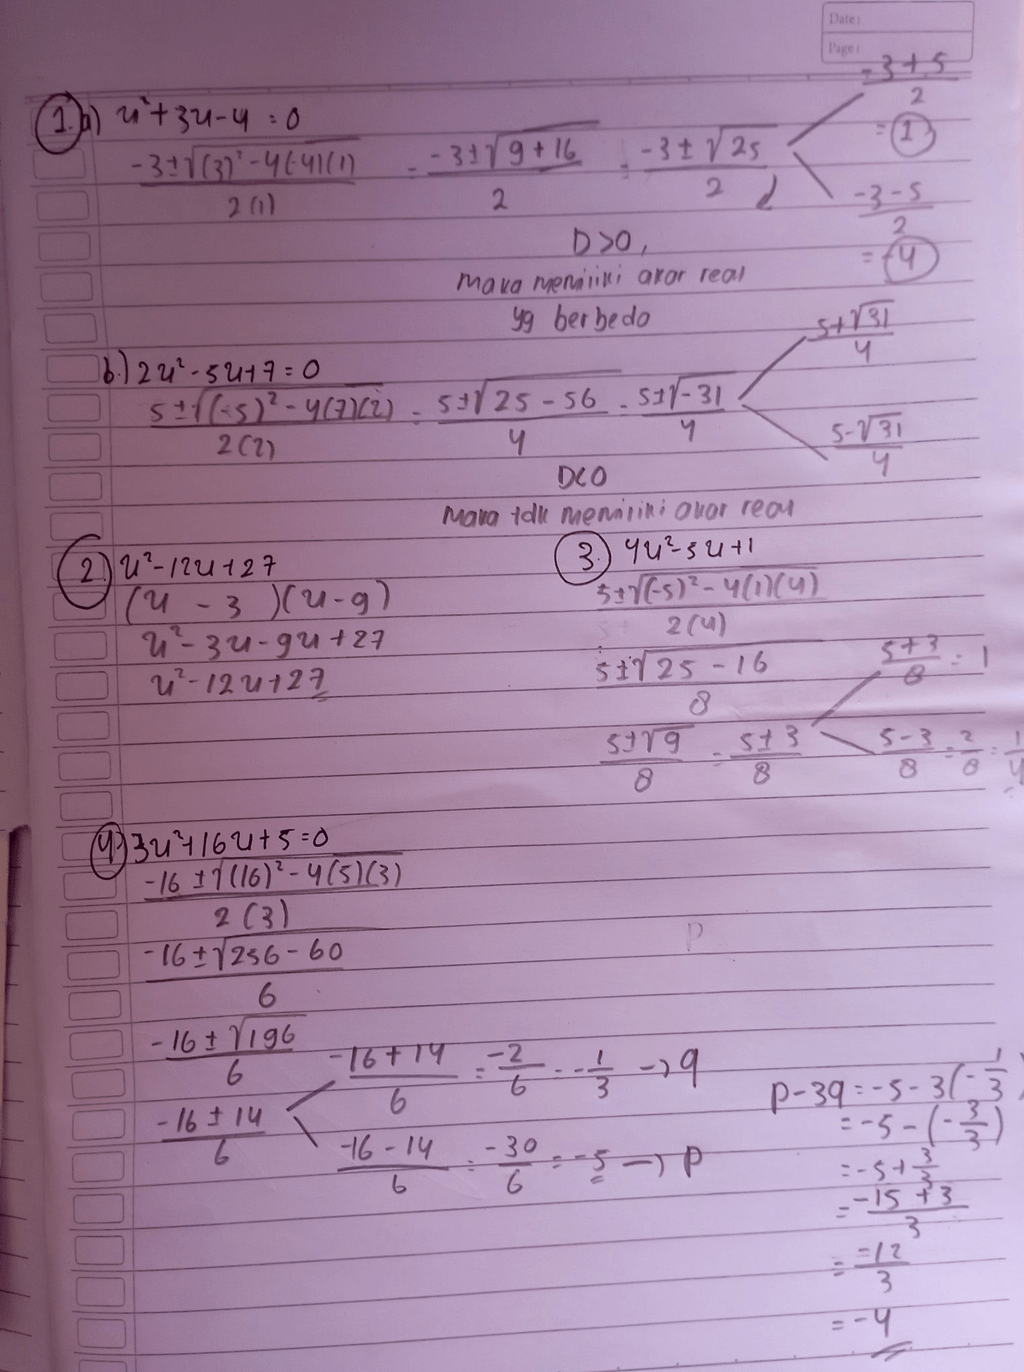 Date:
Page:
1. a) x²+3x-4=0
-3±√(3)²-4(-4)(1) / 2(1) = -3±√9+16 / 2 = -3±√25 / 2
-3+5 / 2 = 1
-3-5 / 2 = -4
D>0,
maka memiliki akar real
yg berbeda
b.) 2x²-5x+7=0
5±√(-5)²-4(7)(2) / 2(2) = 5±√25-56 / 4 = 5±√-31 / 4
5+√31 / 4
5-√31 / 4
D<0
Maka tdk memiliki akar real
2) x²-12x+27
(x - 3)(x-9)
x²-3x-9x+27
x²-12x+27
3.) 4x²-5x+1
5±√(-5)²-4(1)(4) / 2(4)
5±√25-16 / 8
5±√9 / 8 = 5±3 / 8
5+3 / 8 = 1
5-3 / 8 = 2/8 = 1/4
4) 3x²+16x+5=0
-16±√(16)²-4(5)(3) / 2(3)
-16±√256-60 / 6
-16±√196 / 6
-16±14 / 6
-16+14 / 6 = -2/6 = -1/3 → q
-16-14 / 6 = -30/6 = -5 → p
P
p-3q = -5-3(-1/3)
= -5-(-3/3)
= -5+3/3
= -15+3 / 3
= -12/3
= -4